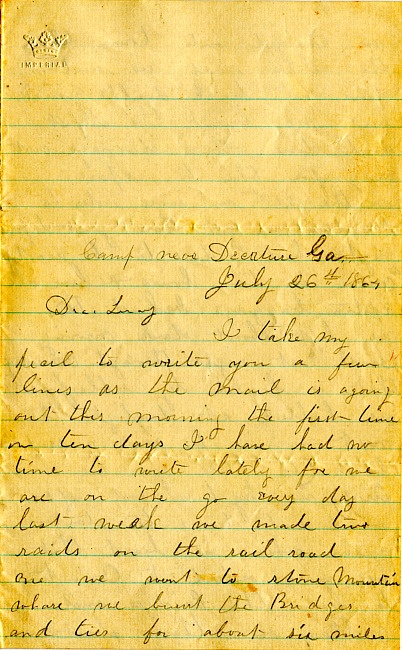 IMPERIAL
Camp near Decature Ga
July 26th 1864
Dear
I take my
pecil to write you a few
lines as the mail is agoing
out this morning the first time
in ten days I have had no
time to write lately for we
are on the go every day
last week we made two
raids on the rail road
we went to stone Mountain
whare we burnt the Bridges
and ties for about six miles